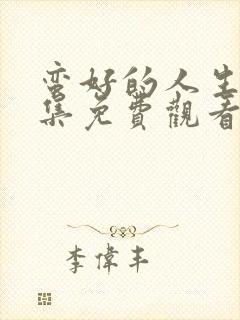 蛮好的人生
集免費觀看
李偉丰